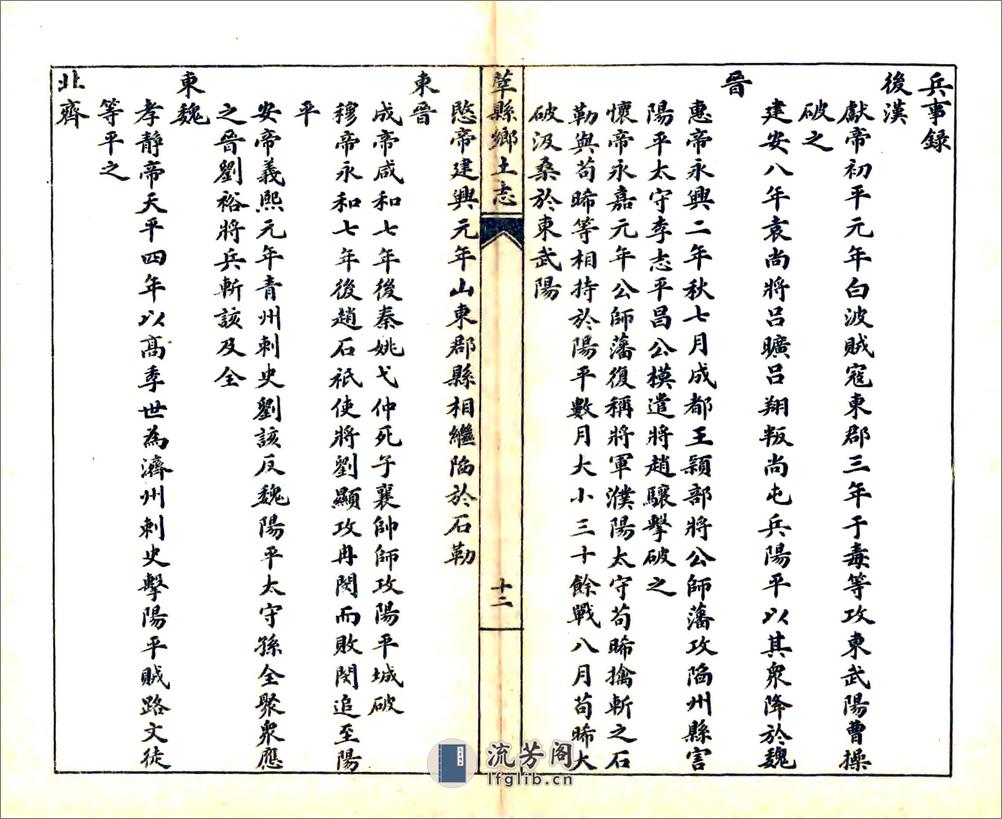 兵事錄
後漢
獻帝初平元年白波賊寇東郡三年于毒等攻東武陽曹操
破之
建安八年袁尚將呂曠呂翔叛尚屯兵陽平以其衆降於魏
晉
惠帝永興二年秋七月成都王穎部將公師藩攻陷州縣害
陽平太守李志平昌公模遣將趙驤擊破之
懷帝永嘉元年公師藩復稱將軍濮陽太守苟晞擒斬之石
勒與苟晞等相持於陽平數月大小三十餘戰八月苟晞大
破汲桑於東武陽
莘縣鄉土志
十二
愍帝建興元年山東郡縣相繼陷於石勒
東晉
成帝咸和七年後秦姚弋仲死子襄帥師攻陽平城破
穆帝永和七年後趙石祇使將劉顯攻冉閔而敗閔追至陽
平
安帝義熙元年青州刺史劉該反魏陽平太守孫全聚衆應
之晉劉裕將兵斬該及全
東魏
孝靜帝天平四年以高季世為濟州刺史擊陽平賊路文徒
等平之
北齊
流芳閣
lfglib.cn